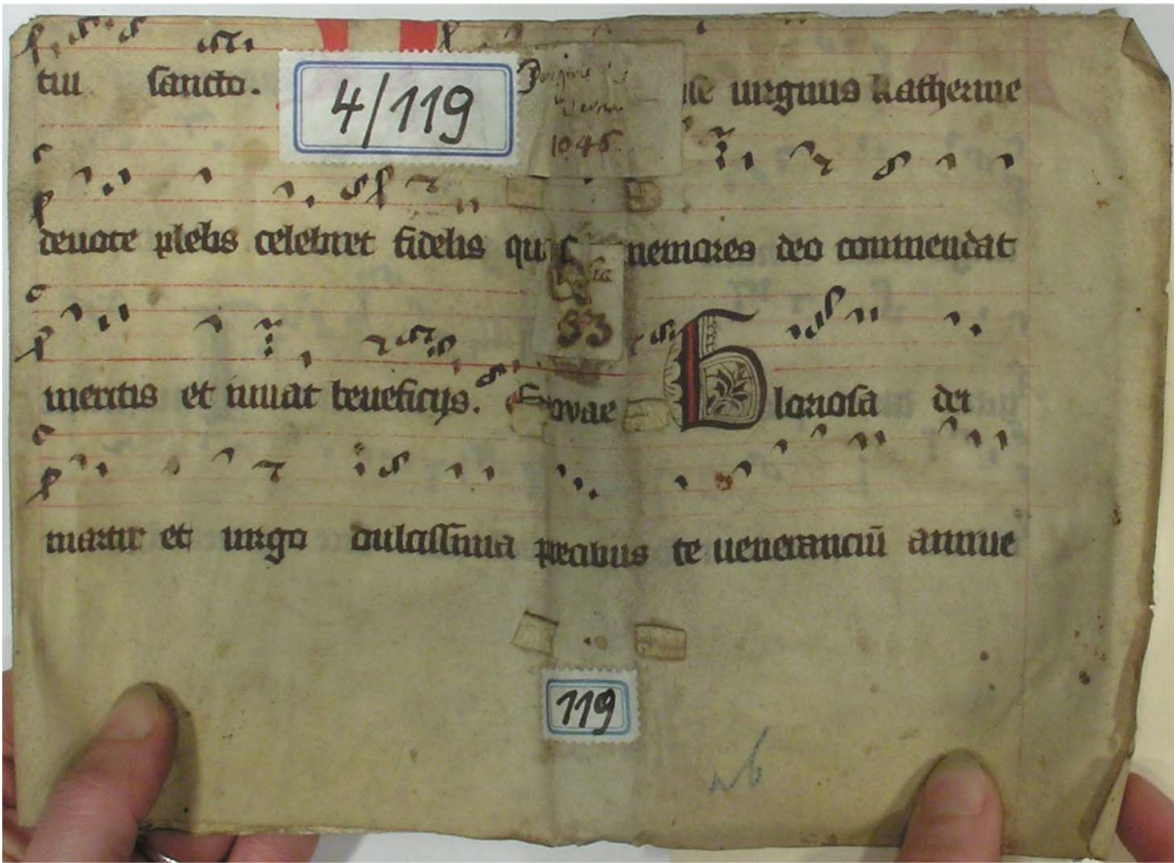 tui sancto. 4/119 urginis katherine
1046
deuote plebis celebret fidelis memores deo commendat
53
meritis et iuuat beneficijs. Evovae Gloriosa dei
martir et uirgo dulcissima precibus te ueneranciū annue
119